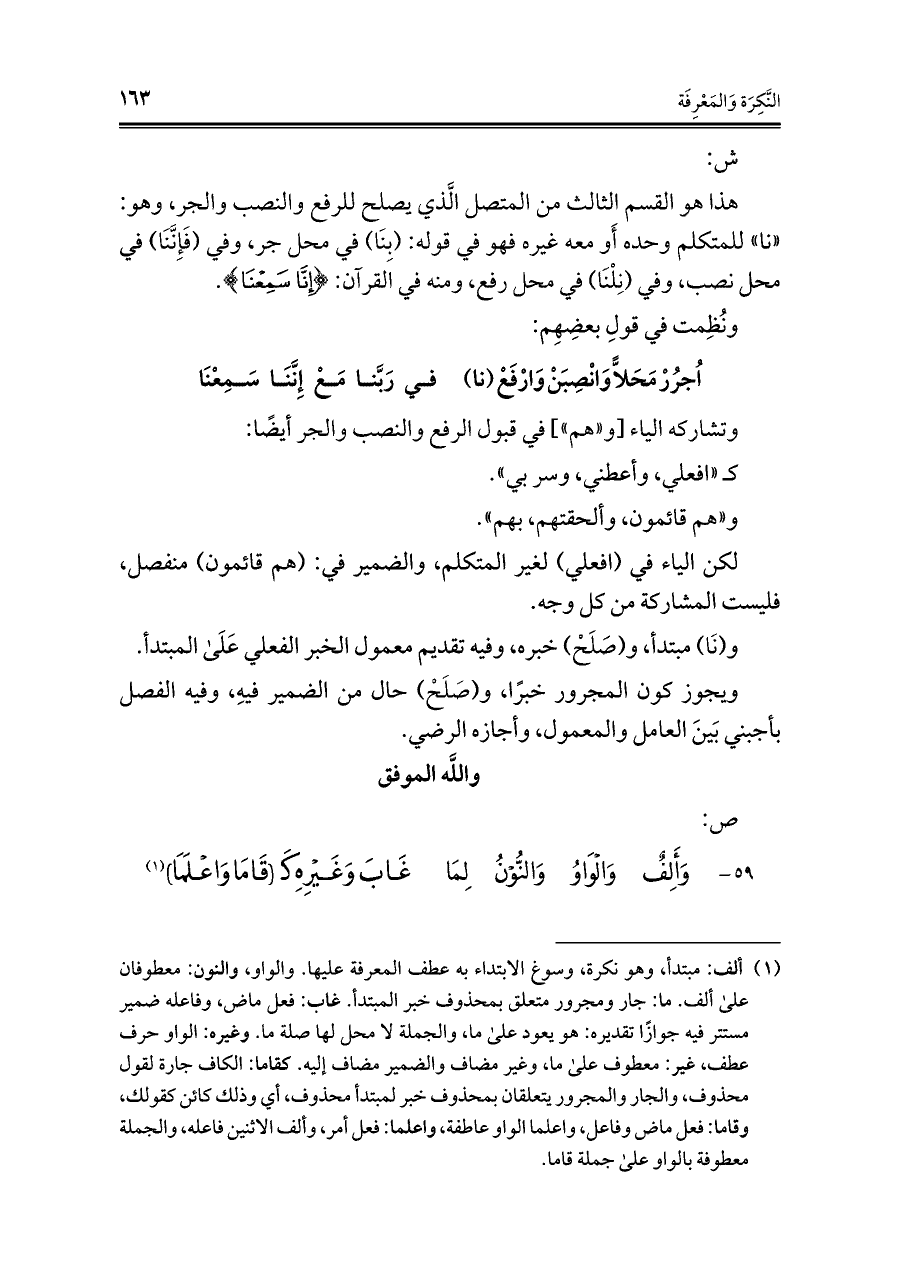 النَّكِرَة وَالمَعْرِفَة ١٦٣
ش:
هذا هو القسم الثالث من المتصل الَّذي يصلح للرفع والنصب والجر، وهو:
«نا» للمتكلم وحده أَو معه غيره فهو في قوله: (بِنَا) في محل جر، وفي (فَإِنَّنَا) في
محل نصب، وفي (نِلْنَا) في محل رفع، ومنه في القرآن: ﴿إِنَّا سَمِعْنَا﴾.
ونُظِمت في قولِ بعضِهِم:
اُجرُرْ مَحَلاًّ وَانْصِبَنْ وَارْفَعْ (نا) فـي رَبَّنـا مَـعْ إِنَّنَـا سَـمِعْنَا
وتشاركه الياء [و«هم»] في قبول الرفع والنصب والجر أيضًا:
كـ «افعلي، وأعطني، وسر بي».
و«هم قائمون، وألحقتهم، بهم».
لكن الياء في (افعلي) لغير المتكلم، والضمير في: (هم قائمون) منفصل،
فليست المشاركة من كل وجه.
و(نَا) مبتدأ، و(صَلَحْ) خبره، وفيه تقديم معمول الخبر الفعلي عَلَىٰ المبتدأ.
ويجوز كون المجرور خبرًا، و(صَلَحْ) حال من الضمير فيهِ، وفيه الفصل
بأجنبي بَينَ العامل والمعمول، وأجازه الرضي.
واللَّه الموفق
ص:
٥٩- وَأَلِفٌ وَالْوَاوُ وَالنُّوْنُ لِمَا غَـابَ وَغَـيْرِهِ كَـ (قَـامَا وَاعْـلَمَا)(١)
(١) ألف: مبتدأ، وهو نكرة، وسوغ الابتداء به عطف المعرفة عليها. والواو، والنون: معطوفان
علىٰ ألف. ما: جار ومجرور متعلق بمحذوف خبر المبتدأ. غاب: فعل ماض، وفاعله ضمير
مستتر فيه جوازًا تقديره: هو يعود علىٰ ما، والجملة لا محل لها صلة ما. وغيره: الواو حرف
عطف، غير: معطوف علىٰ ما، وغير مضاف والضمير مضاف إليه. كقاما: الكاف جارة لقول
محذوف، والجار والمجرور يتعلقان بمحذوف خبر لمبتدأ محذوف، أي وذلك كائن كقولك،
وقاما: فعل ماض وفاعل، واعلما الواو عاطفة، واعلما: فعل أمر، وألف الاثنين فاعله، والجملة
معطوفة بالواو علىٰ جملة قاما.